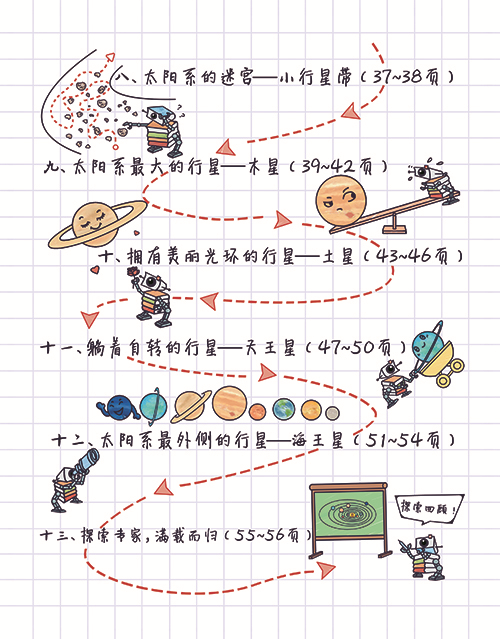 八、太阳系的迷宫——小行星带(37~38页)
九、太阳系最大的行星——木星(39~42页)
十、拥有美丽光环的行星——土星(43~46页)
十一、躺着自转的行星——天王星(47~50页)
十二、太阳系最外侧的行星——海王星(51~54页)
探索回顾!
十三、探索专家,满载而归(55~56页)